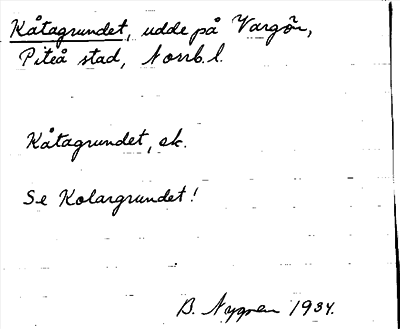 Kåtagrundet, udde på Vargön,
Piteå stad, Norrb. l.
Kåtagrundet, ek.
Se Kolargrundet!
B. Nygren 1934.